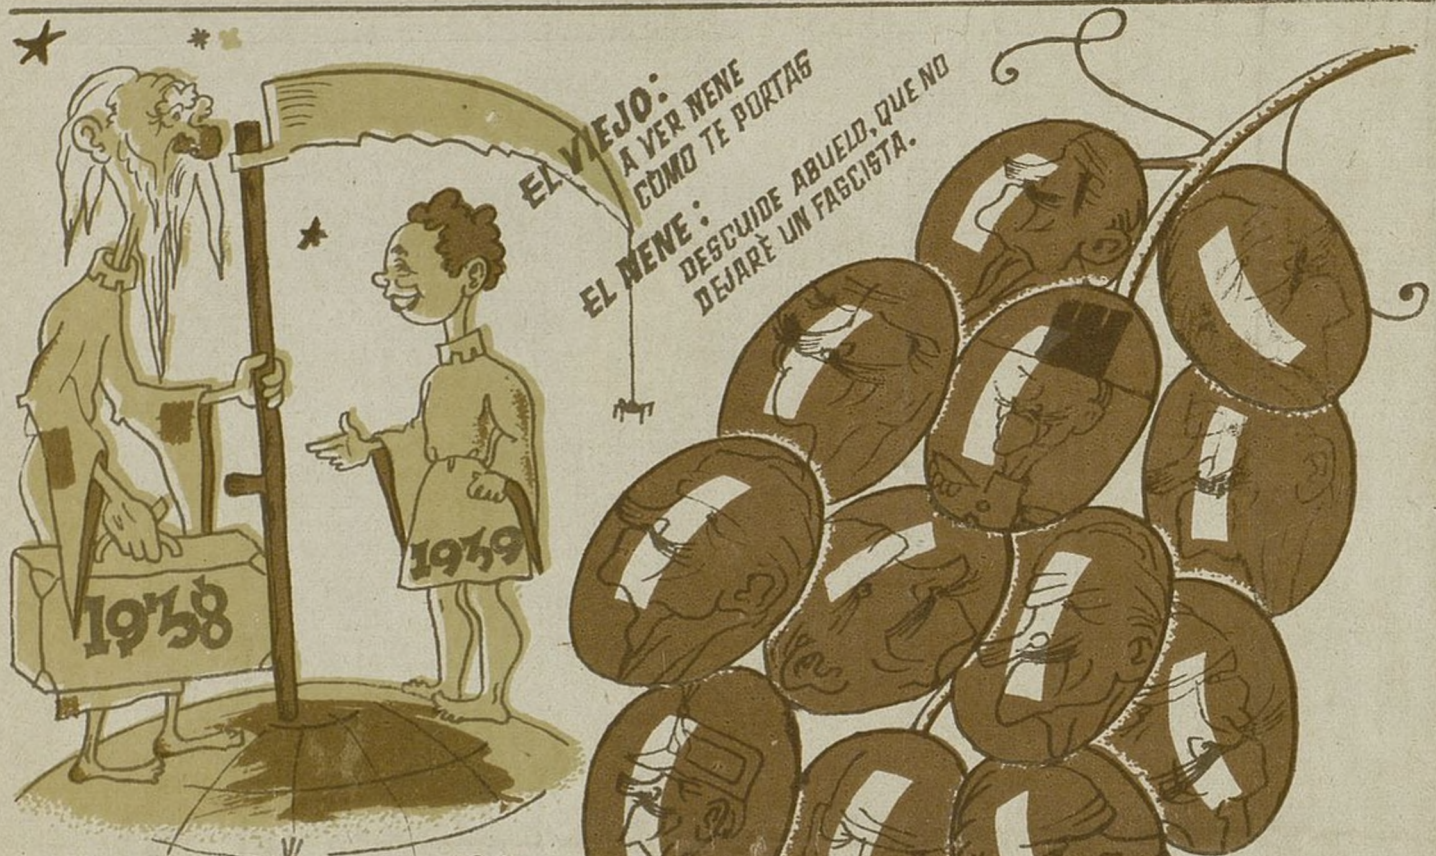 EL VIEJO:
A VER NENE
COMO TE PORTAS
EL NENE:
DESCUIDE ABUELO, QUE NO
DEJARÈ UN FASCISTA.
1938
1939